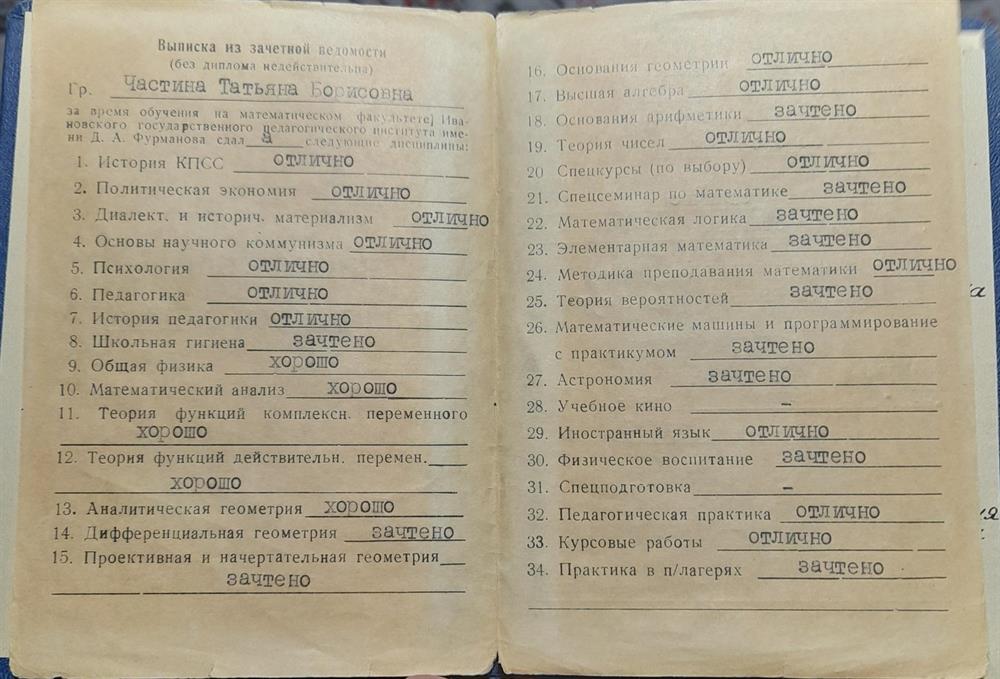 Выписка из зачетной ведомости
(без диплома недействительна)
Гр. Частина Татьяна Борисовна
за время обучения на математическом факультете Ива-
новского государственного педагогического института име-
ни Д. А. Фурманова сдала следующие дисциплины:
1. История КПСС отлично
2. Политическая экономия отлично
3. Диалект. и историч. материализм отлично
4. Основы научного коммунизма отлично
5. Психология отлично
6. Педагогика отлично
7. История педагогики отлично
8. Школьная гигиена зачтено
9. Общая физика хорошо
10. Математический анализ хорошо
11. Теория функций комплексн. переменного
хорошо
12. Теория функций действительн. перемен.
хорошо
13. Аналитическая геометрия хорошо
14. Дифференциальная геометрия зачтено
15. Проективная и начертательная геометрия
зачтено
16. Основания геометрии отлично
17. Высшая алгебра отлично
18. Основания арифметики зачтено
19. Теория чисел отлично
20 Спецкурсы (по выбору) отлично
21. Спецсеминар по математике зачтено
22. Математическая логика зачтено
23. Элементарная математика зачтено
24. Методика преподавания математики отлично
25. Теория вероятностей зачтено
26. Математические машины и программирование
с практикумом зачтено
27. Астрономия зачтено
28. Учебное кино –
29. Иностранный язык отлично
30. Физическое воспитание зачтено
31. Спецподготовка –
32. Педагогическая практика отлично
33. Курсовые работы отлично
34. Практика в п/лагерях зачтено